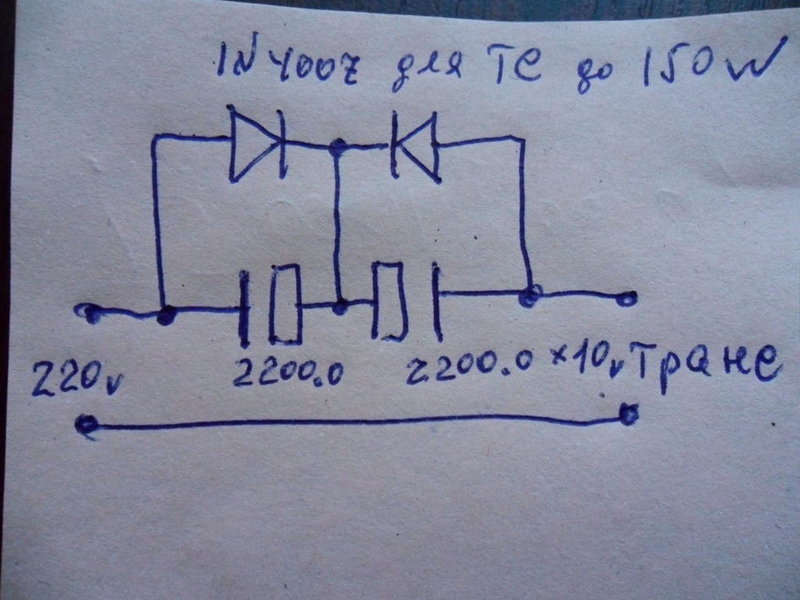 1N4007 для ТС до 150W
220v 2200.0 2200.0 ×10v Транс